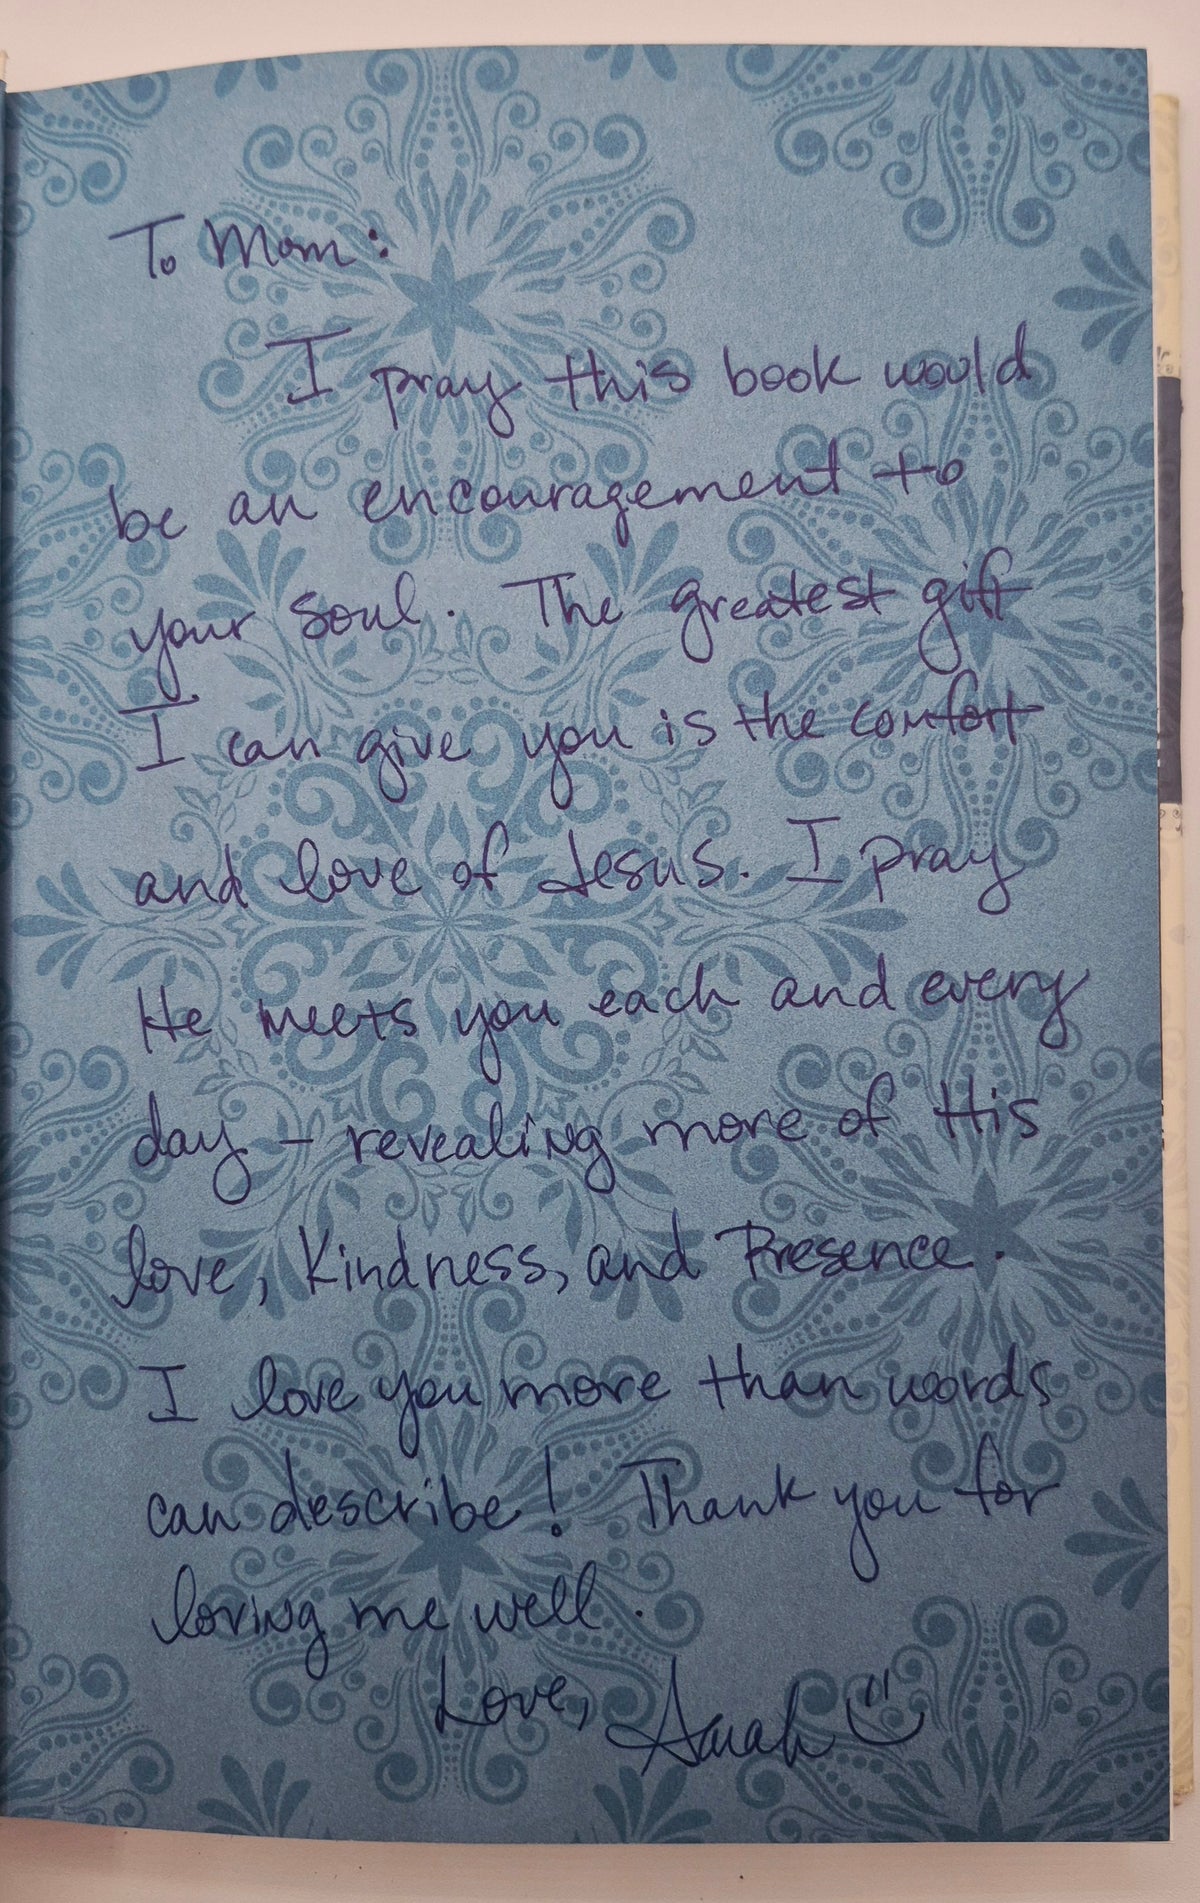 To Mom:
I pray this book would
be an encouragement to
your soul. The greatest gift
I can give you is the comfort
and love of Jesus. I pray
He meets you each and every
day – revealing more of His
love, Kindness, and Presence.
I love you more than words
can describe! Thank you for
loving me well.
Love, Sarah